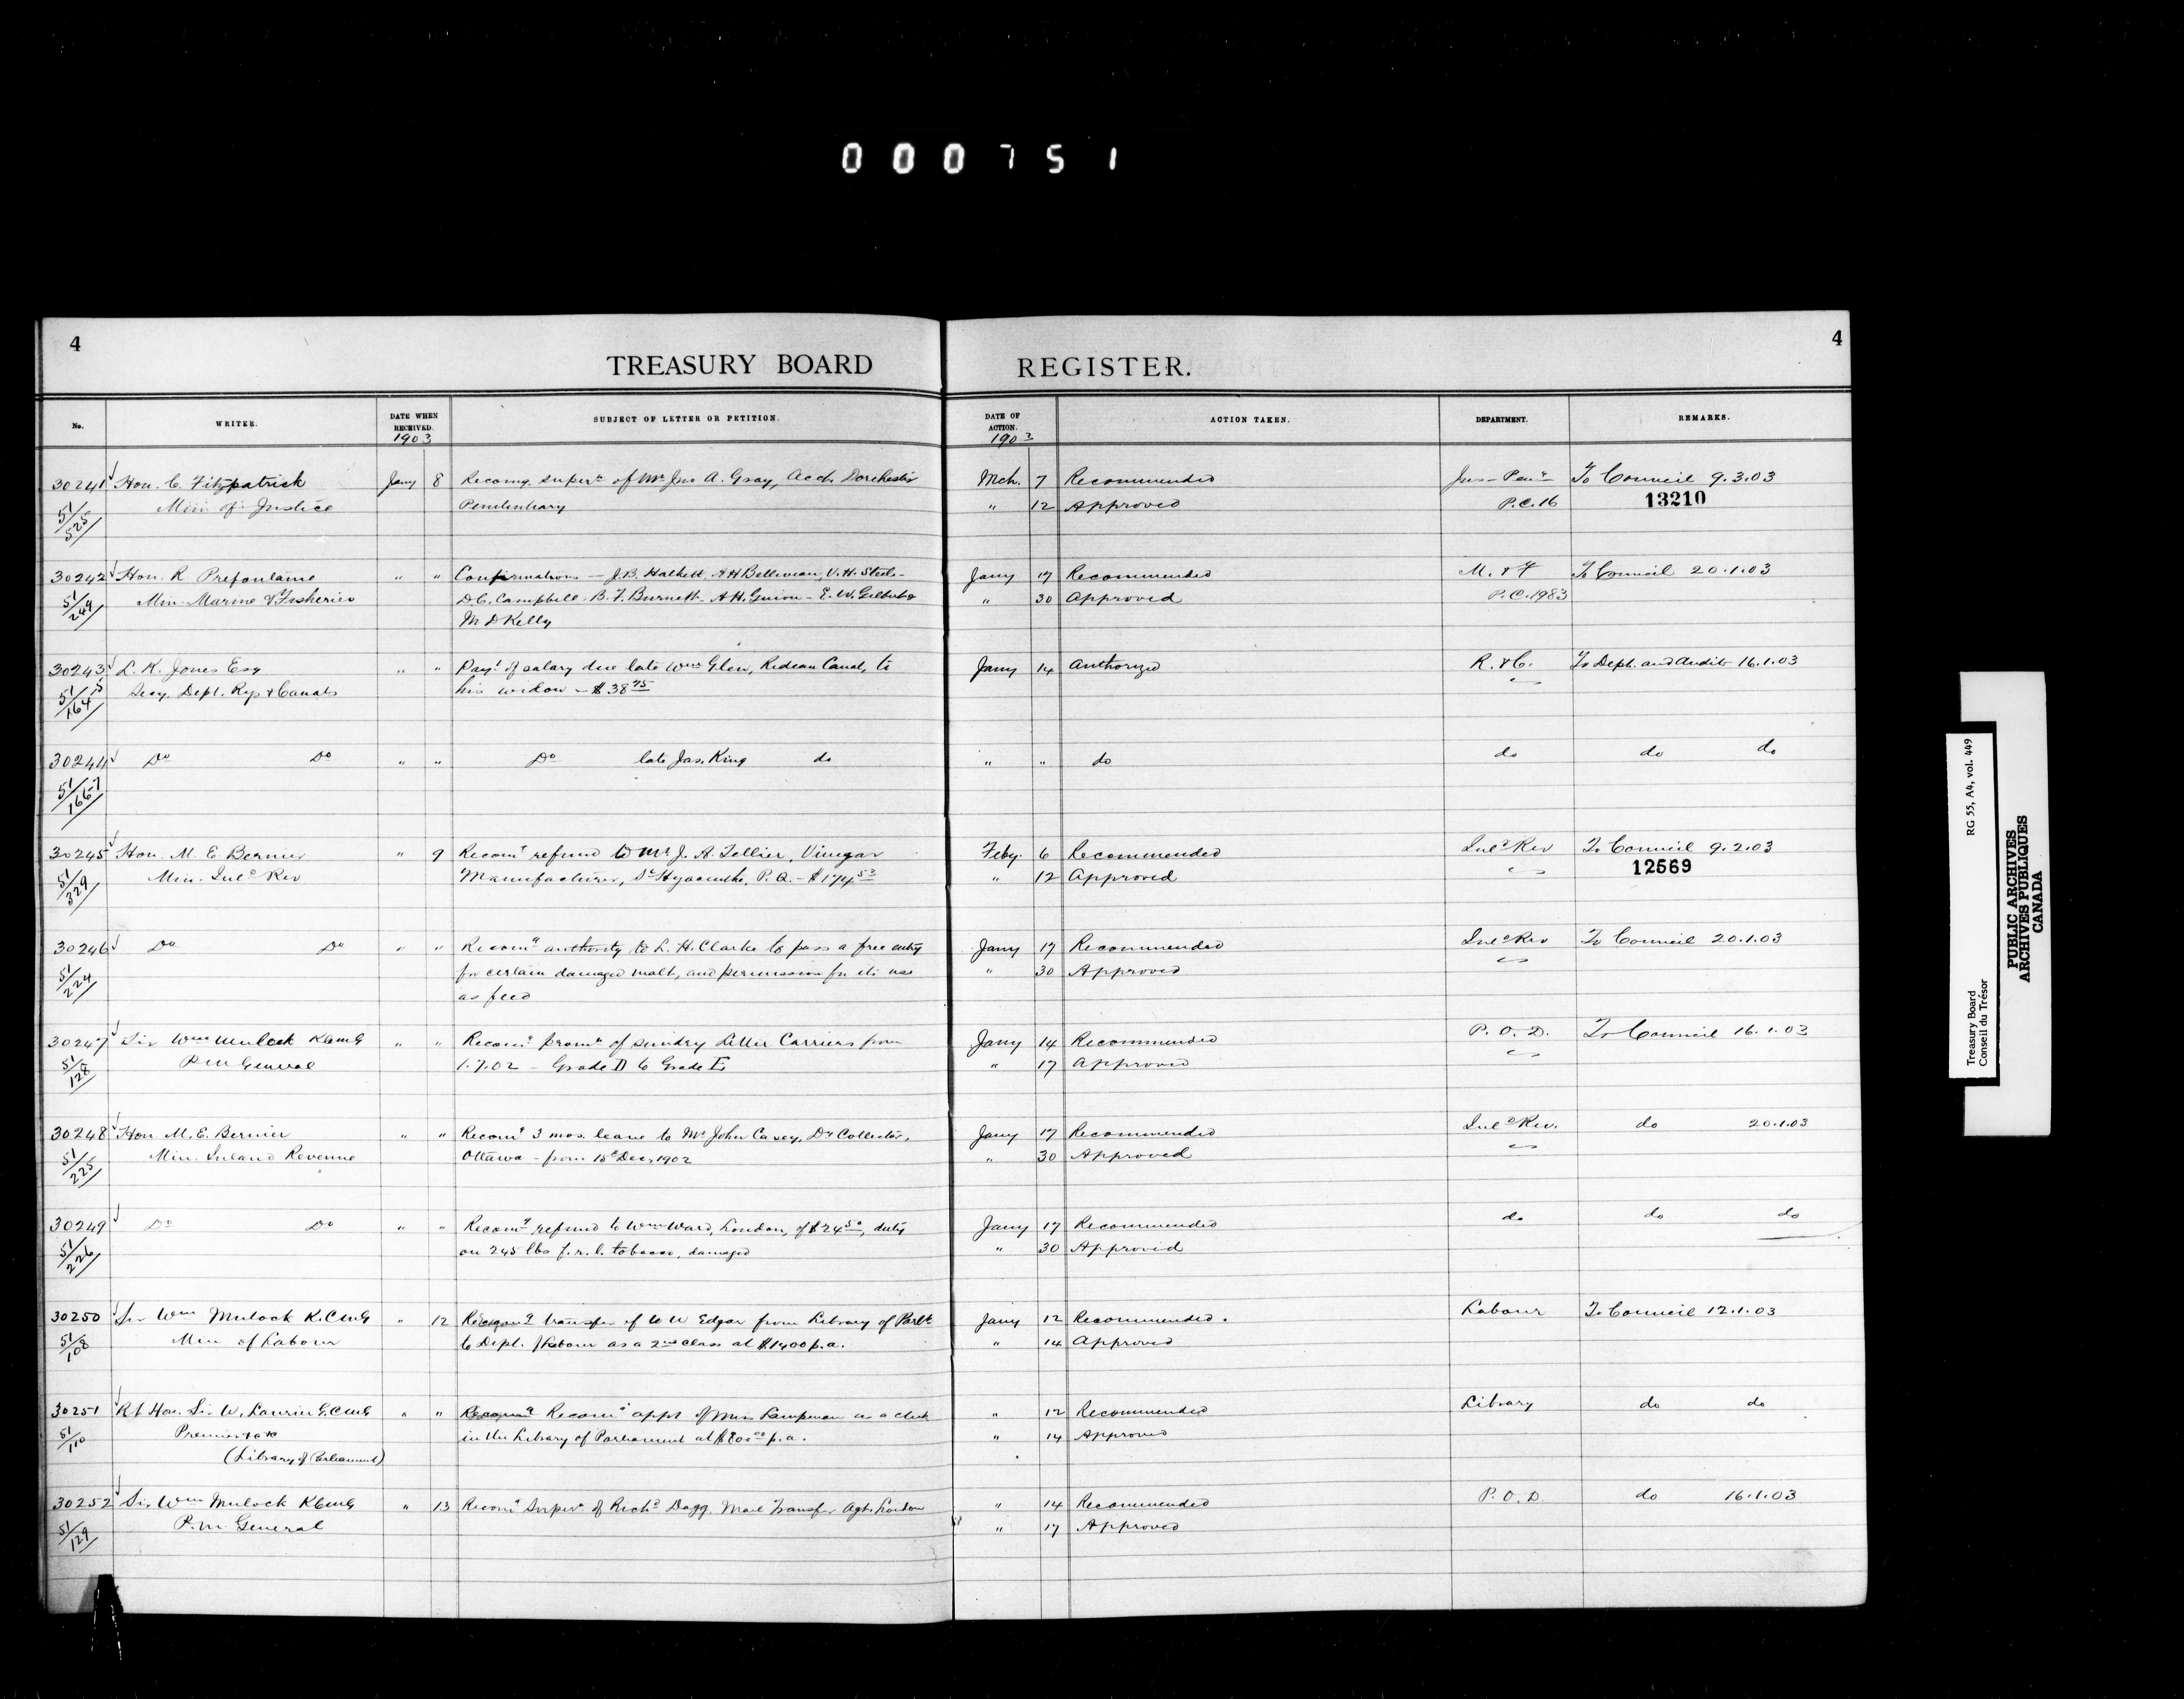 000751
4
4
TREASURY BOARD REGISTER.
No. WRITER. DATE WHEN RECEIVED. SUBJECT OF LETTER OR PETITION. DATE OF ACTION. ACTION TAKEN. DEPARTMENT. REMARKS.
1903 1903
30241 Hon. C. Fitzpatrick Jany 8 Recomg. super. of Mr Jno A. Gray, Acct. Dorchester Mch. 7 Recommended Jus-Pen To Council 9.3.03
51/525 Min. of Justice Penitentiary " 12 Approved P.C. 16 13210
30242 Hon. R Prefontaine " " Confirmations — J.B. Halkett, A H Belliveau, V.H. Steele- Jany 17 Recommended M. & F To Council 20.1.03
51/249 Min. Marine & Fisheries D.C. Campbell- B.F. Burnett- A.H. Guion- E.W. Gilbert & " 30 Approved P.C. 1983
M D Kelly
30243 L. K. Jones Esq " " Payt of salary due late Wm Glen, Rideau Canal, to Jany 14 Authorized R. & C. To Dept. and Audit 16.1.03
51/165 Secy. Dept. Rys & Canals his widow - $38 75
164
30244 Do Do " " Do late Jas. King do " " do do do do
51/166-7
30245 Hon. M. E. Bernier " 9 Recomg refund to Mr J. A. Tellier, Vinegar Feby. 6 Recommended Inld Rev To Council 9.2.03
51/329 Min. Inld Rev Manufacturer, St Hyacinthe, P.Q. - $174 53 " 12 Approved 12569
30246 Do Do " " Recomg authority to L. H. Clarke to pass a free entry Jany 17 Recommended Inld Rev To Council 20.1.03
51/224 for certain damaged malt, and permission for its use " 30 Approved
as feed
30247 Sir Wm Mulock KCMG " " Recomg promn of sundry Letter Carriers from Jany 14 Recommended P. O. D. To Council 16.1.03
51/128 P M General 1.7.02 - Grade D to Grade E " 17 Approved
30248 Hon M. E. Bernier " " Recomg 3 mos. leave to Mr John Casey, Dy Collector, Jany 17 Recommended Inld Rev. do 20.1.03
51/225 Min. Inland Revenue Ottawa - from 15th Dec, 1902 " 30 Approved
30249 Do Do " " Recomg refund to Wm Ward, London, of $24 50, duty Jany 17 Recommended do do do
51/226 on 245 lbs f.r.l. tobacco, damaged " 30 Approved
30250 Sir Wm Mulock K.CMG " 12 Recomg transfer of W W Edgar from Library of Parlt Jany 12 Recommended. Labour To Council 12.1.03
51/108 Min of Labour to Dept. of Labour as a 2nd class at $1400 p.a. " 14 Approved
30251 Rt Hon. Sir W. Laurier G.CMG " " Recomg appt of Miss Lampman as a clerk " 12 Recommended Library do do
51/110 Premier in the Library of Parliament at $800 00 p.a. " 14 Approved
(Library of Parliament)
30252 Sir Wm Mulock KCMG " 13 Recomg super of Richd Dagg. Mail Transfer Agt. London " 14 Recommended P. O. D. do 16.1.03
51/129 P.M. General " 17 Approved
Treasury Board
Conseil du Trésor
RG 55, A4, vol. 449
PUBLIC ARCHIVES
ARCHIVES PUBLIQUES
CANADA